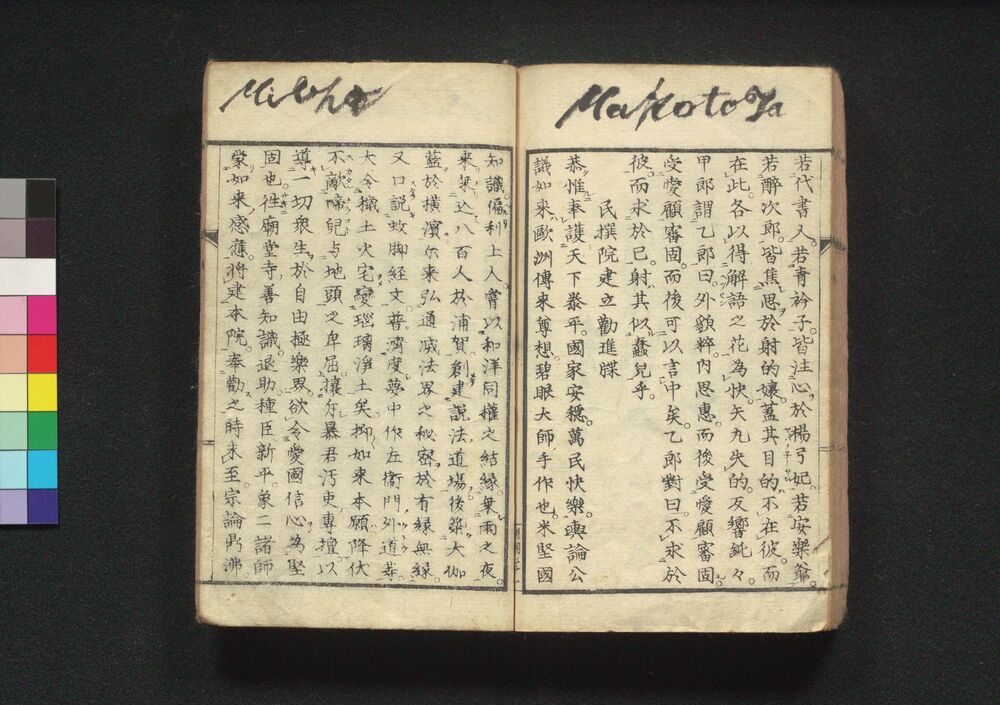 MakotoYa
若代書人若青衿子皆注心於楊弓妃若安樂爺
若醉次郎皆焦思於射的孃蓋其目的不在彼而
在此各以得解語之花為快矢九失的反響鈍々
甲郎謂乙郎曰外貌粹内思惠而後受愛顧審固
受愛顧審固而後可以言中矣乙郎對曰不求於
彼而求於己射其似蠢兒乎
民撰院建立勸進牒
恭惟奉護天下泰平國家安穩萬民快樂輿論公
議如来歐洲傳来尊想碧眼大師手作也米堅國
知識偏利上人嘗以和洋同權之結縁乗雨之夜
来桒込八百人於浦賀創建説法道場後築大伽
藍於橫濱尓来弘通滅法界之秘密於有縁無縁
又口説蚊脚経文普濟度夢中作左衞門外道恭
大令穢土火宅變瑙璃淨土矣抑如来本願降伏
不敵啼兒与地頭之卑屈攘尓暴君汚吏專擅以
導一切衆生於自由極樂界欲令愛國信心為堅
固也徃廟堂寺善知識退助種臣新平象二諸師
蒙如来感應将建本院奉勸之時未至宗論鼎沸